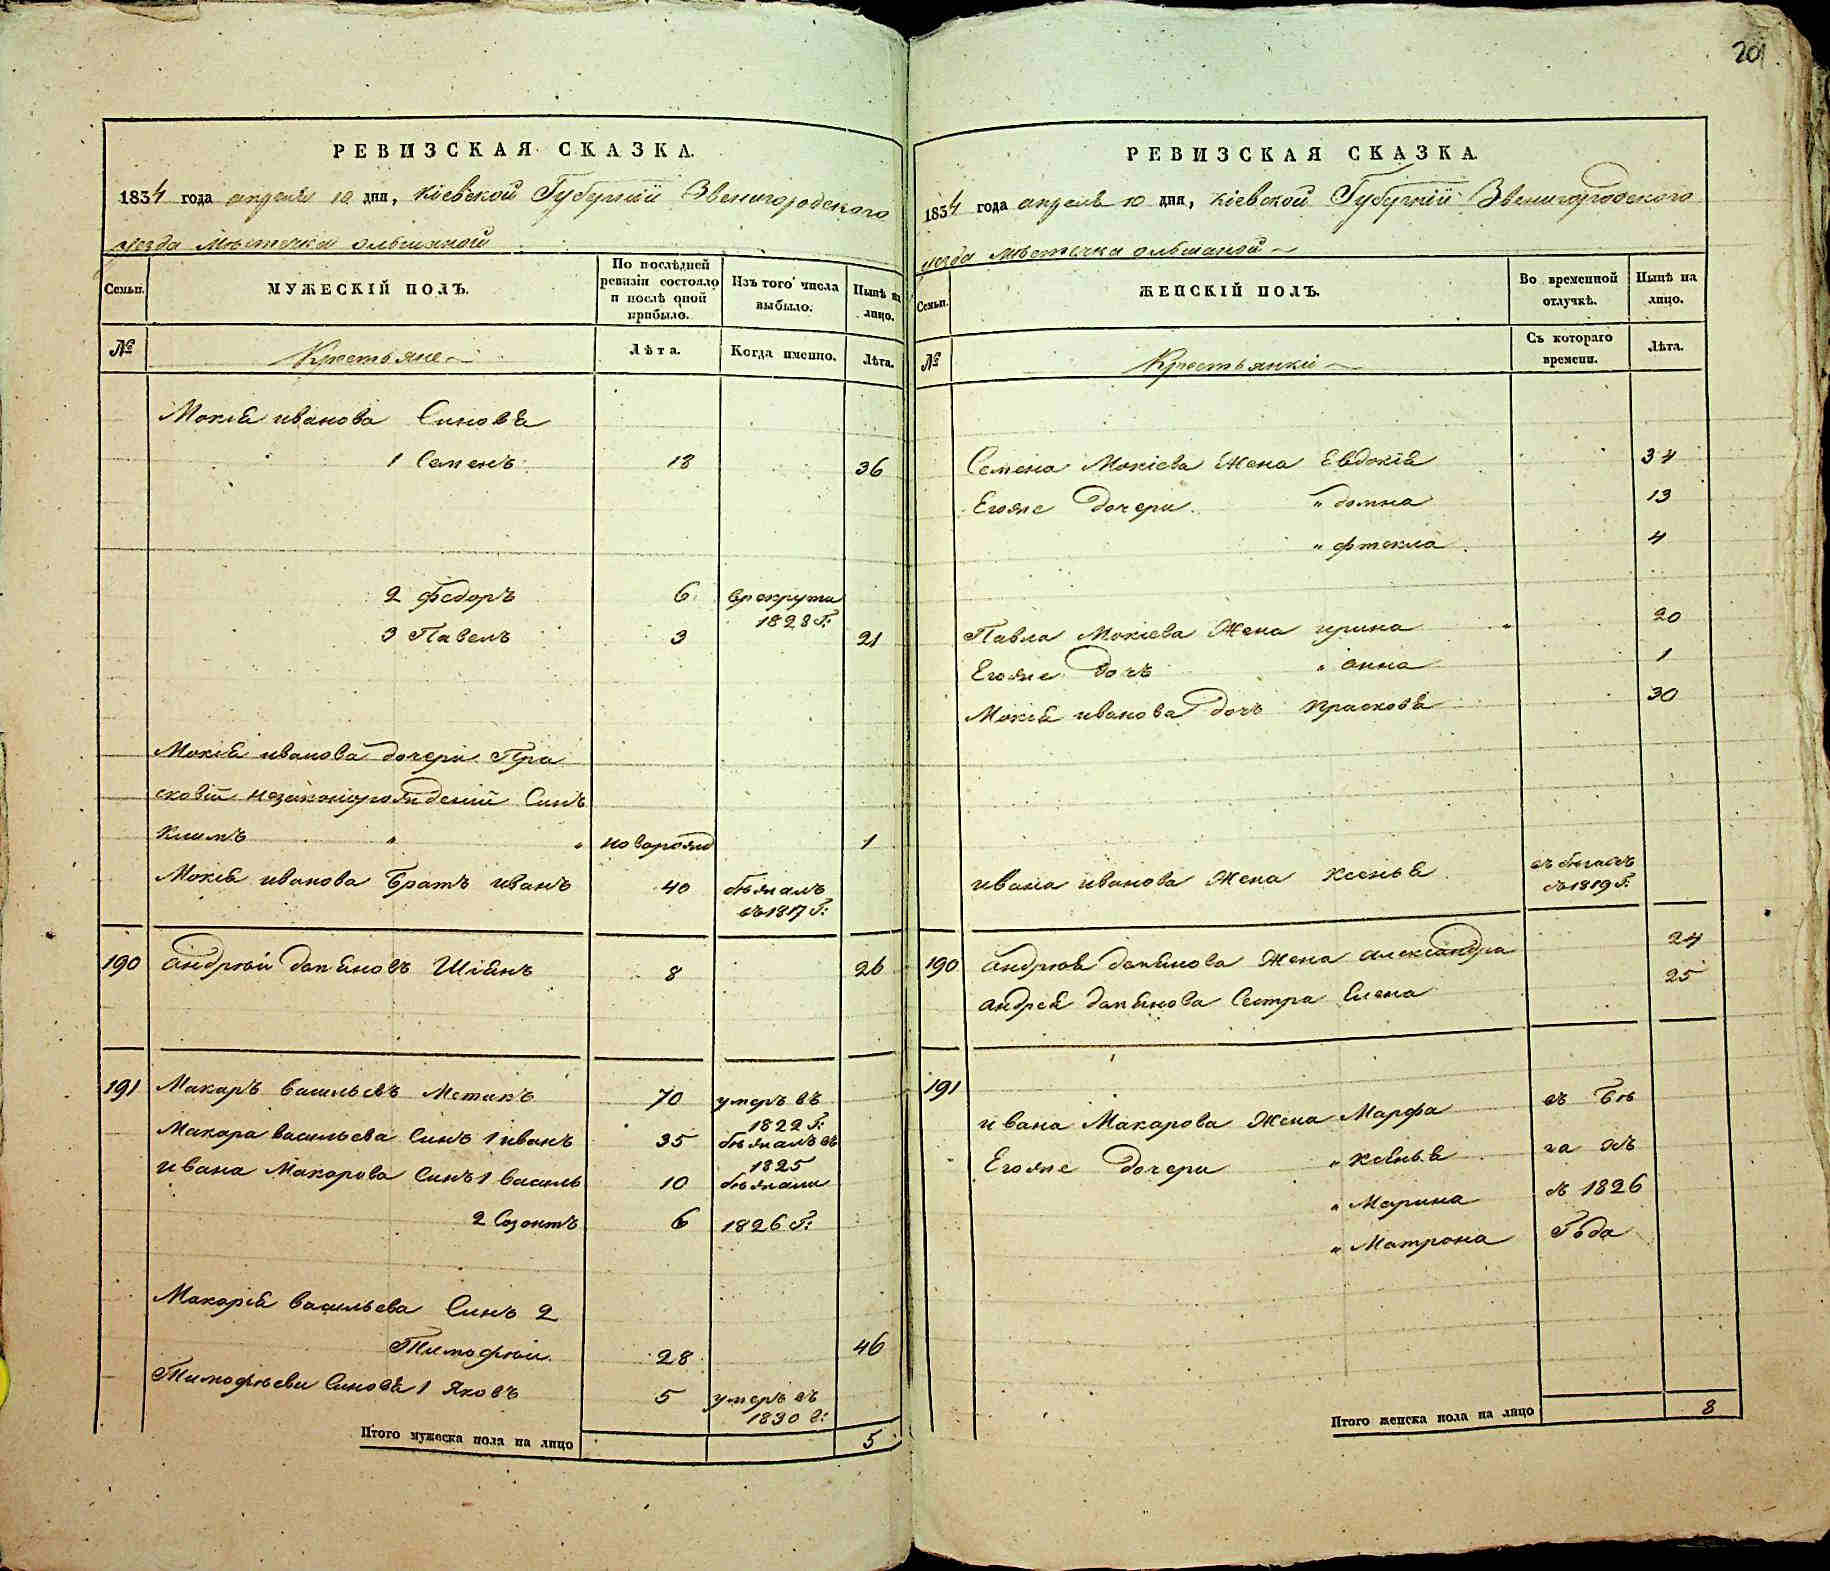 201
РЕВИЗСКАЯ СКАЗКА.
1834 года апреля 10 дня, Кіевской Губерніи Звенигородского
уезда Мѣстечка Ольшаной
Семьи.
МУЖЕСКІЙ ПОЛЪ.
По послѣдней ревизіи состояло и послѣ оной прибыло.
Изъ того числа выбыло.
Нынѣ на лицо.
№
Крестьяне
Лѣта.
Когда именно.
Лѣта.
Мокія иванова Синовя
1 Семенъ 18 36
2 Федоръ 6 врекруты
1828 Г:
3 Павелъ 3 21
Мокія иванова дочери Пра
сковіи незакониорожденій Синъ
Климъ " " новорожд 1
Мокія иванова Братъ иванъ 40 бѣжалъ
въ 1817 Г:
190 андрѣй Вас Шіянъ 8 26
191 Макаръ васильевъ 70 умеръ въ
1822 Г:
Макара васильева Синъ 1 иванъ 35 бѣжалъ въ
1825
ивана Макарова Синъ 1 василь 10 бѣжали
2 Созонтъ 6 1826 Г:
Макарія васильева Синъ 2
Тимофѣй 28 46
Тимофѣеви Синовя 1 Яковъ 5 умеръ въ
1830 г:
Итого мужеска пола на лицо 5
РЕВИЗСКАЯ СКАЗКА.
1834 года апреля 10 дня, Кіевской Губерніи Звенигородского
уезда Мѣстечка Ольшаной
Семьи.
ЖЕНСКІЙ ПОЛЪ.
Во временной отлучкѣ.
Нынѣ на лицо.
№
Крестьянки
Съ котораго времени.
Лѣта.
Семена Мокіева Жена Евдокія 34
Егоже дочери " домна 13
" фтекла 4
Павла Мокіева Жена ирина " 20
Егоже дочь " анна 1
Мокія иванова дочь прасковя 30
ивана иванова Жена Ксенья въ бѣгахъ
съ 1819 Г:
190 андрѣя Жена александра 24
андрея Сестра Елена 25
191
ивана Макарова Жена Марфа въ Бѣ
Егоже дочери " Ксенья га хъ
" Марина съ 1826
" Матрона Года
Итого женска пола на лицо 8